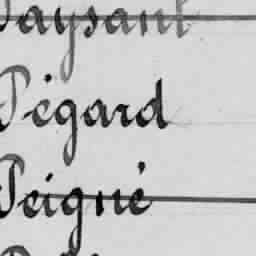 Paysant
Pégard
Peigné